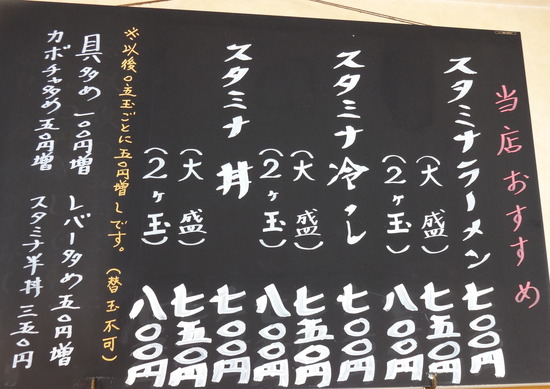 当店おすすめ
スタミナラーメン 七〇〇円
(大盛) 七五〇円
(2ヶ玉) 八〇〇円
スタミナ冷し 七〇〇円
(大盛) 七五〇円
(2ヶ玉) 八〇〇円
スタミナ丼 七〇〇円
(大盛) 七五〇円
(2ヶ玉) 八〇〇円
※以後0.5玉ごとに五〇円増しです。(替玉不可)
具多め 一〇〇円増 レバー多め 五〇円増
カボチャ多め 五〇円増 スタミナ半丼 三五〇円